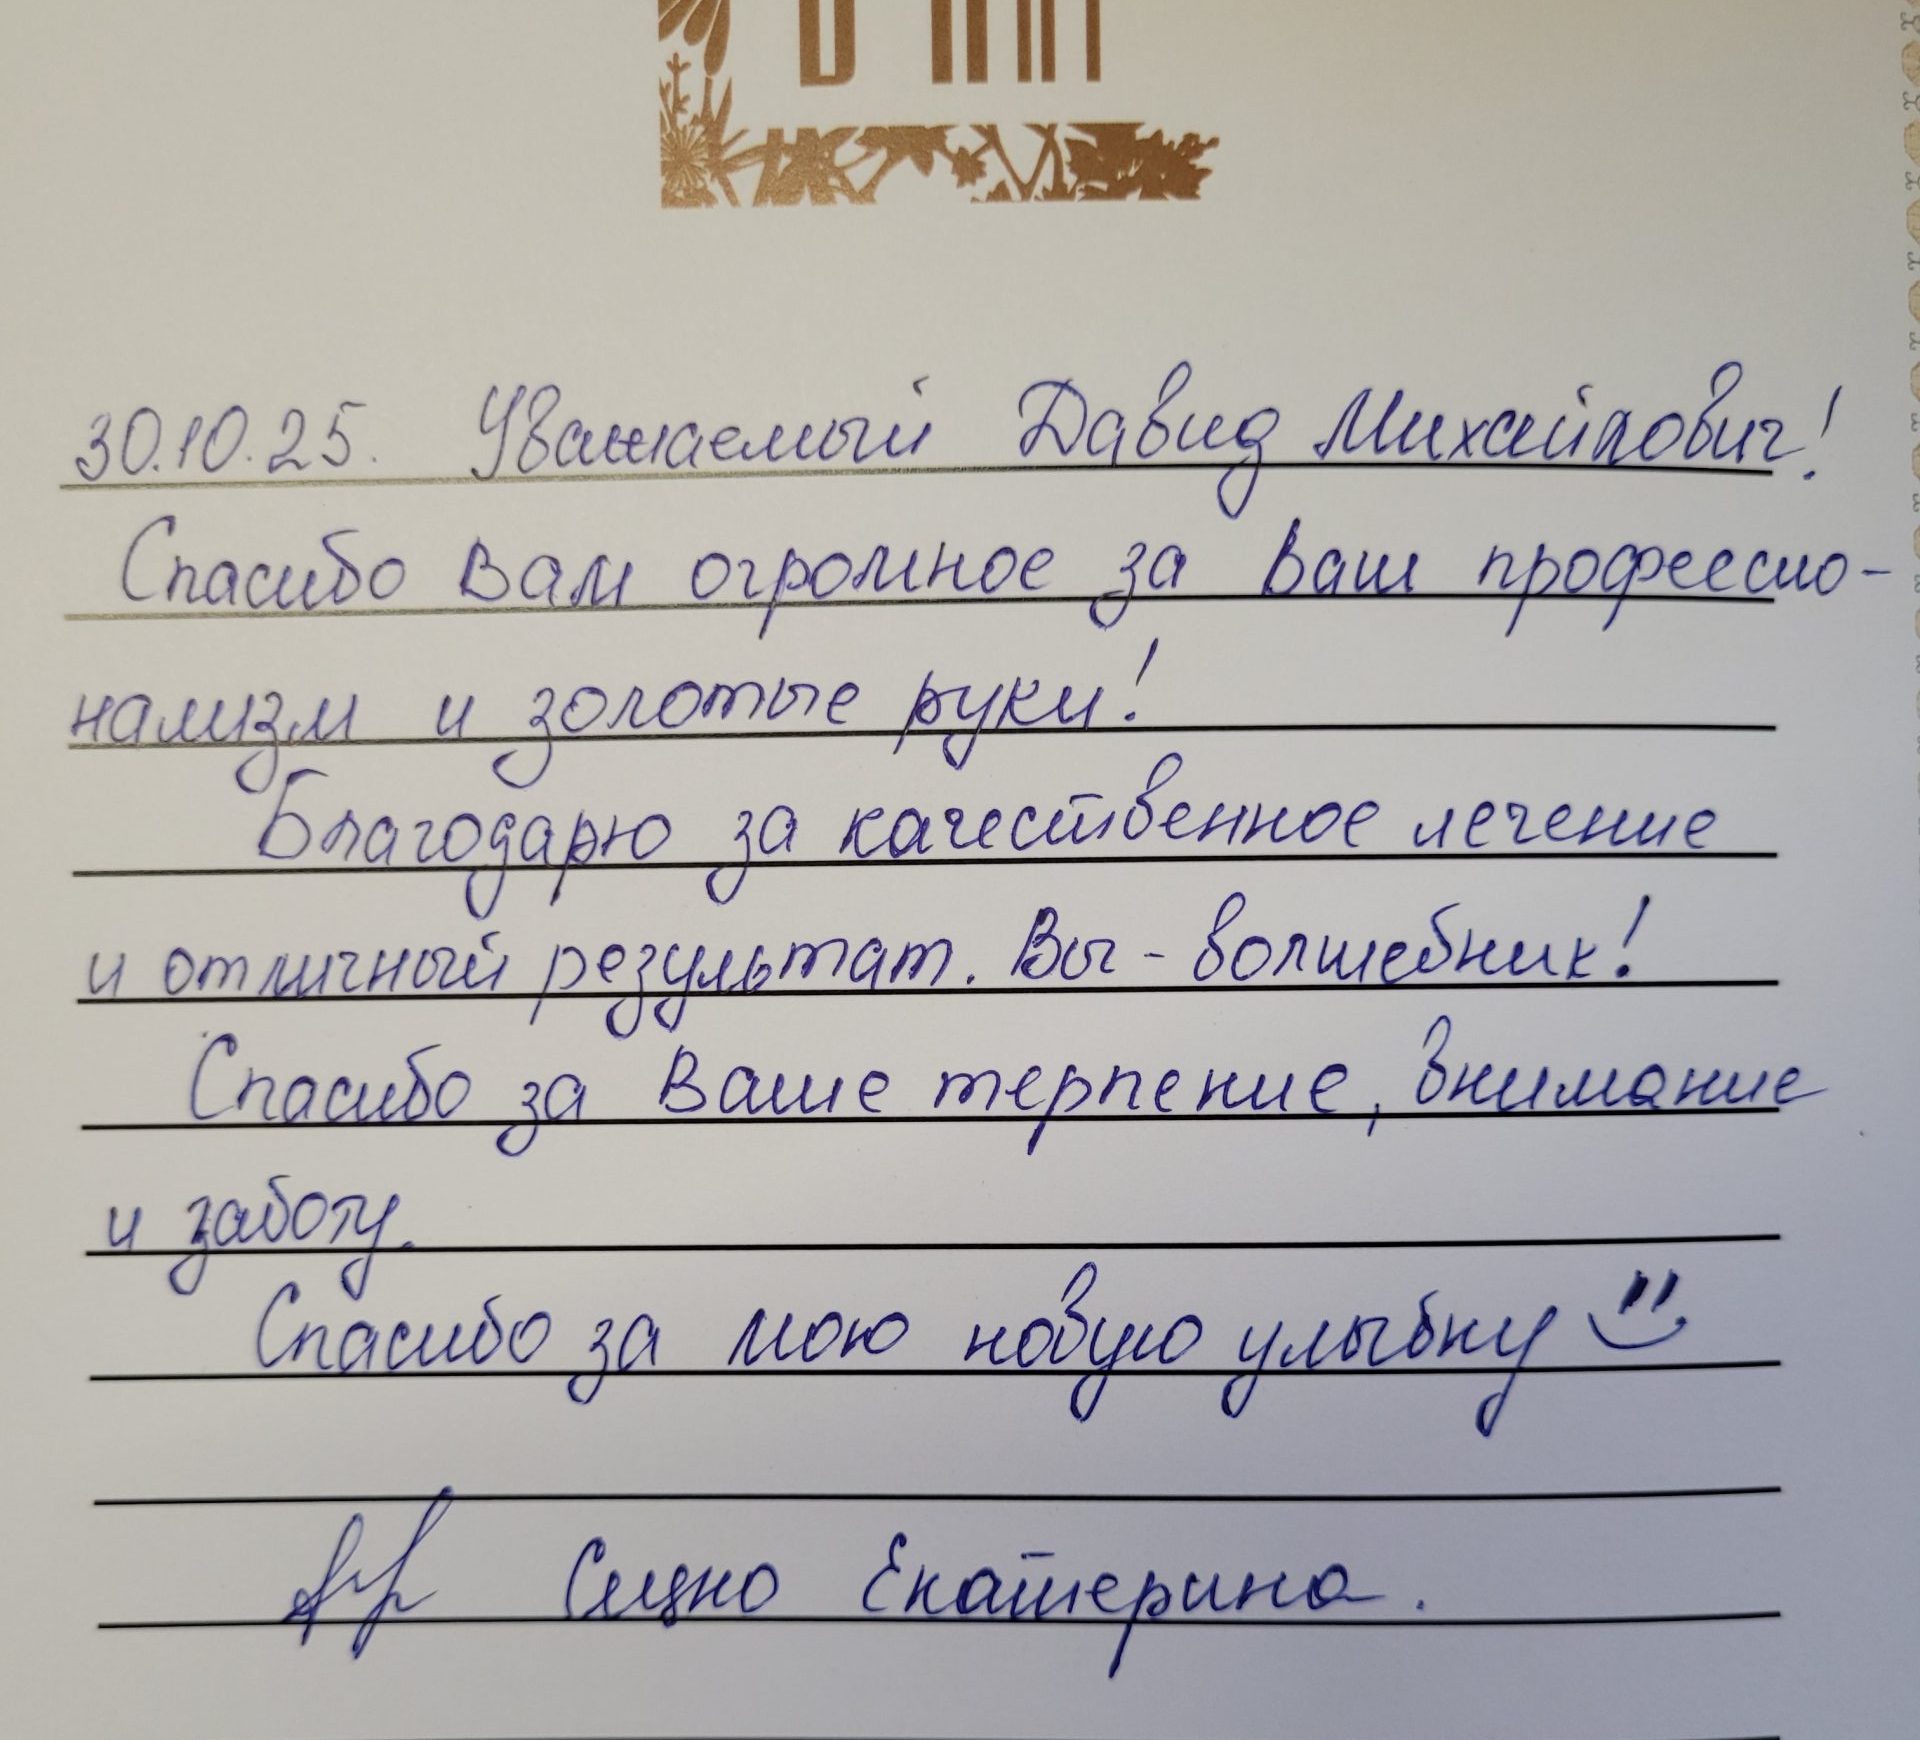 30.10.25. Уважаемый Давид Михайлович!
Спасибо Вам огромное за Ваш профессио-
нализм и золотые руки!
Благодарю за качественное лечение
и отличный результат. Вы - волшебник!
Спасибо за Ваше терпение, внимание
и заботу.
Спасибо за мою новую улыбку
Екатерина.